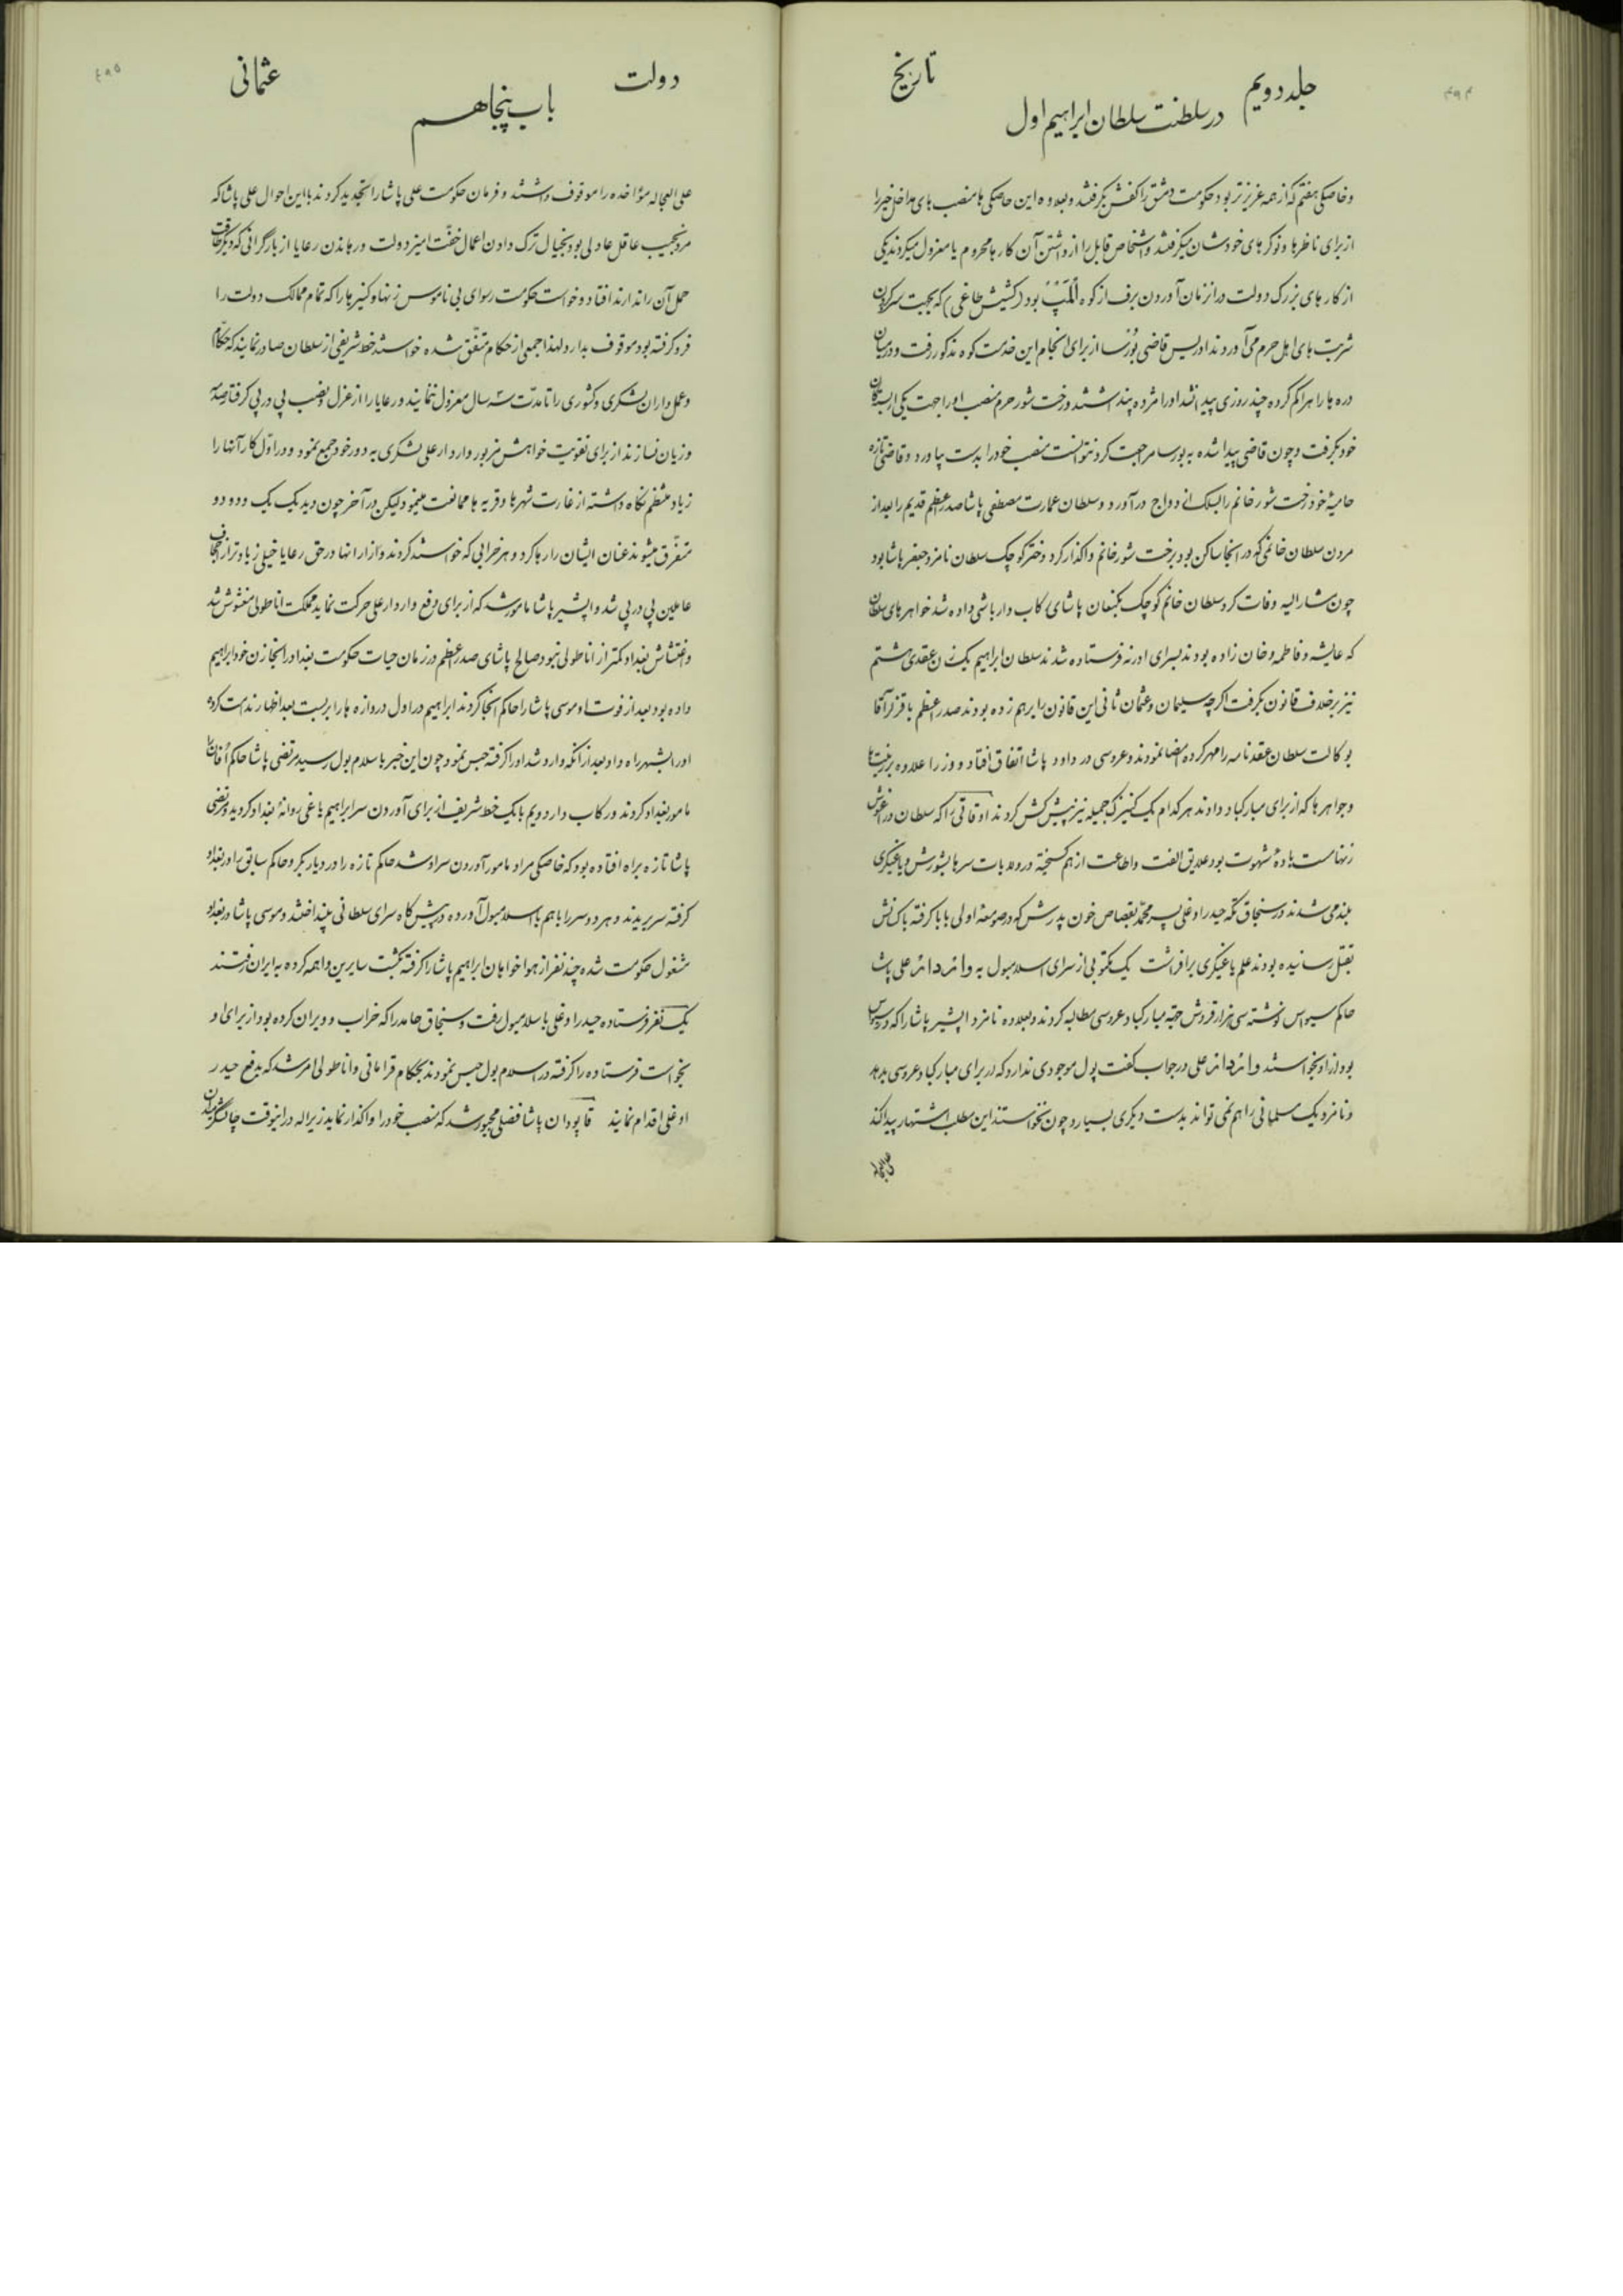 ۴۹۴
جلد دویم
تاریخ
در سلطنت سلطان ابراهیم اول
و خاصکی هفتم که از همه عزیزتر بود حکومت دمشق را کفش بگرفتند و بعلاوه این خاصکی ها منصب های مداخل خیز را
از برای ناظرها و نوکرهای خودشان میگرفتند و اشخاص قابل را از داشتن آن کارها محروم یا معزول میکردند یکی
از کارهای بزرگ دولت در آنزمان آوردن برف از کوه اُلَمْپ بود (کشیش طاغی) که بجهت سرد کردن
شربت های اهل حرم می آوردند ادریس قاضی بورسا از برای انجام این خدمت کوه مذکور رفت و در میان
دره ها راه را گم کرده چند روزی پیدا نشد او را مرده پنداشتند و رخت شور حرم منصب او را جهت یکی از بستگان
خود بگرفت و چون قاضی پیدا شده به بورسا مراجعت کرد نتوانست منصب خود را بدست بیاورد و قاضی تازه
حامیهٔ خود رخت شور خانم را بسلک ازدواج درآورد و سلطان عمارت مصطفی پاشا صدر اعظم قدیم را بعد از
مردن سلطان خانمی که در آنجا ساکن بود برخت شور خانم واگذار کرد دختر کوچک سلطان نامزد جعفر پاشا بود
چون مشارالیه وفات کرد سلطان خانم کوچک بکنعان پاشای رکاب دار باشی داده شد خواهرهای سلطان
که عایشه و فاطمه و خان زاده بودند بسرای ادرنه فرستاده شدند سلطان ابراهیم یک زن عقدی هشتم
نیز برخلاف قانون بگرفت اگرچه سلیمان و عثمان ثانی این قانون را برهم زده بودند صدر اعظم با قزلر آقا
بوکالت سلطان عقدنامه را مهر کرده امضا نمودند و عروسی در داود پاشا اتفاق افتاد و وزرا علاوه بر زینتها
و جواهرها که از برای مبارکباد دادند هر کدام یک کنیزک جمیله نیز پیش کش کردند اوقاتی را که سلطان در آغوش
زنها مست بادهٔ شهوت بود علایق الفت و اطاعت از هم گسیخته در ولایات سرها بشورش و یاغیگری
بلند می شدند در سنجاق تکه حیدر اوغلی پسر محمد بقصاص خون پدرش که در صومعهٔ اولی بابا گرفته با کسانش
بقتل رسانیده بودند علم یاغیگری برافراشت یک مکتوبی از سرای اسلامبول به واردار علی پاشا
حاکم سیواس نوشته سی هزار قروش جهة مبارکباد عروسی مطالبه کردند و بعلاوه نامزد ابشیر پاشا را که در سیواس
بود از او بخواستند واردار علی در جواب گفت پول موجودی ندارد که از برای مبارکباد عروسی بدهد
و نامزد یک مسلمانی را هم نمی تواند بدست دیگری بسپارد چون نخواستند این مطلب اشتهار پیدا کند
علی العجاله
۴۹۵
دولت
عثمانی
باب پنجاهم
علی العجاله مؤاخذه را موقوف داشتند و فرمان حکومت علی پاشا را تجدید کردند با این احوال علی پاشا که
مرد نجیب عاقل عادلی بود بخیال ترک دادن اعمال خفّت آمیز دولت و رهاندن رعایا از بار گرانی که دیگر طاقت
حمل آن را ندارند افتاد و خواست حکومت رسوای بی ناموس زنها و کنیزها را که تمام ممالک دولت را
فرو گرفته بود موقوف بدارد لهذا جمعی از حکام متفّق شده خواستند خط شریفی از سلطان صادر نمایند که حکّام
و عمل داران لشکری و کشوری را تا مدّت سه سال معزول ننمایند و رعایا را از عزل و نصب پی در پی گرفتار صدمه
و زیان نسازند از برای تقویت خواهش مزبور واردار علی لشکری به دور خود جمع نمود و در اوّل کار آنها را
زیاد منظم نگاه داشته از غارت شهرها و قریه ها ممانعت مینمود ولیکن در آخر چون دید یک یک و دو دو
متفرّق میشوند عنان ایشان را رها کرد و هر خرابی که خواستند کردند و آزار آنها در حق رعایا خیلی زیادتر از اجحاف
عاملین پی در پی شد و ابشیر پاشا مامور شد که از برای دفع واردار علی حرکت نماید مملکت اناطولی مغشوش شد
و اغتشاش بغداد کمتر از اناطولی نبود صالح پاشای صدر اعظم در زمان حیات حکومت بغداد را بخازن خود ابراهیم
داده بود بعد از فوت او موسی پاشا را حاکم آنجا کردند ابراهیم در اول دروازه ها را بر بست بعد اظهار ندامت کرده
او را بشهر راه داد بعد از آنکه وارد شد او را گرفته حبس نمود چون این خبر باسلامبول رسید مرتضی پاشا حاکم را
مامور بغداد کردند و رکاب دار دویم با یک خط شریف از برای آوردن سر ابراهیم یاغی روانهٔ بغداد گردید مرتضی
پاشا تازه براه افتاده بود که خاصکی مراد مامور آوردن سر او شد حاکم تازه را در دیاربکر و حاکم سابق را در بغداد
گرفته سر بریدند و هر دو سر را با هم باسلامبول آورده در پیش گاه سرای سلطانی بینداختند و موسی پاشا در بغداد
مشغول حکومت شده چند نفر از هواخواهان ابراهیم پاشا را گرفته بکشت سایرین واهمه کرده به ایران رفتند
یک نفر فرستاده حیدر اوغلی باسلامبول رفت و سنجاق حامد را که خراب و ویران کرده بود از برای او
بخواست فرستاده را گرفته در اسلامبول حبس نمودند بحکام قرامانی و اناطولی امر شد که بدفع حیدر
اوغلی اقدام نمایند قاپودان پاشا فضلی مجبور شد که منصب خود را واگذار نماید زیرا که در اینوقت